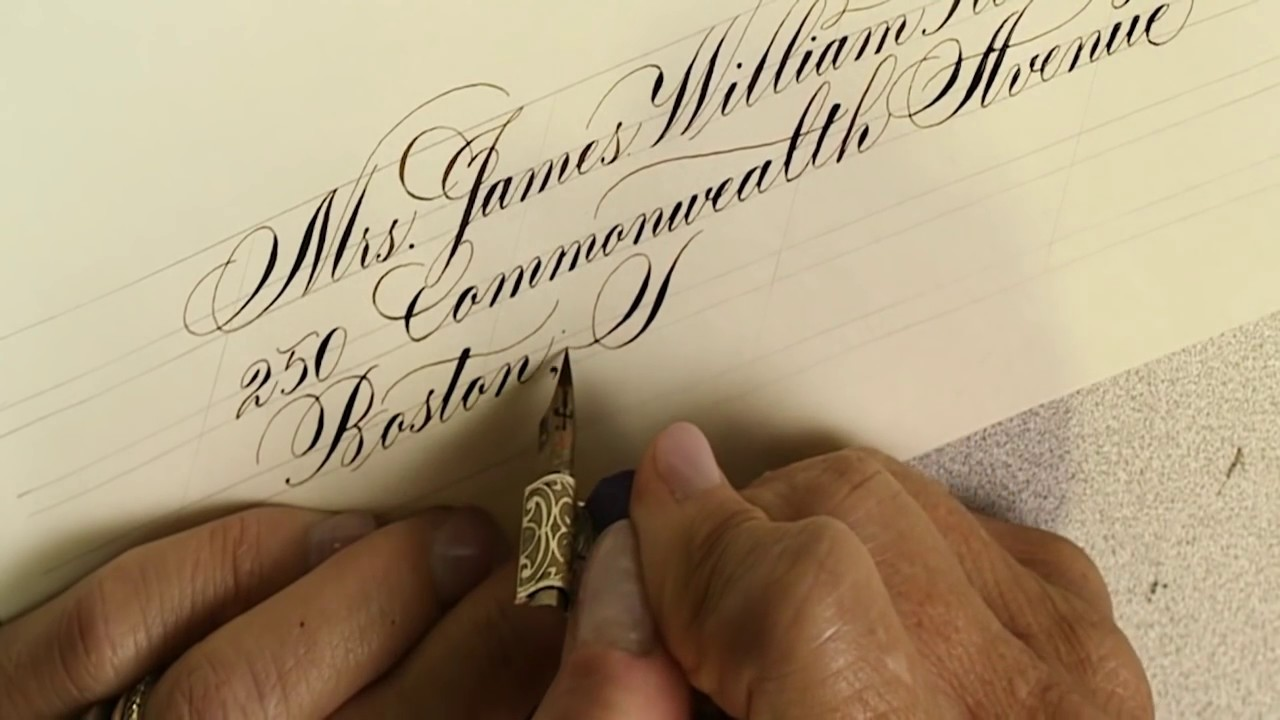 Mrs. James William
250 Commonwealth Avenue
Boston,